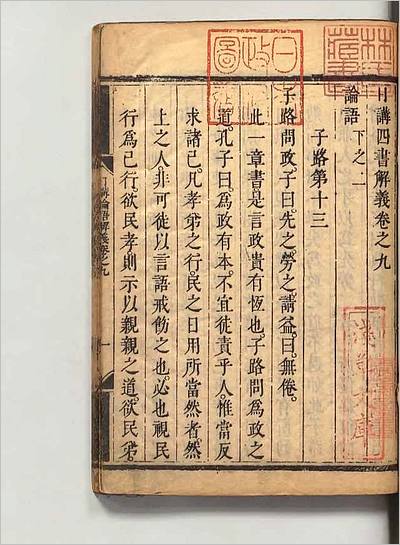 日講四書解義卷之九
論語下之二
子路第十三
子路問政。子曰。先之。勞之。請益。曰。無倦。
此一章書。是言政貴有恆也。子路問爲政之
道。孔子曰。爲政有本。不宜徒責乎人。惟當反
求諸己。凡孝弟之行。民之日用所當然者。然
上之人。非可徒以言語戒飭之也。必也視民
行爲己行。欲民孝。則示以親親之道。欲民弟。